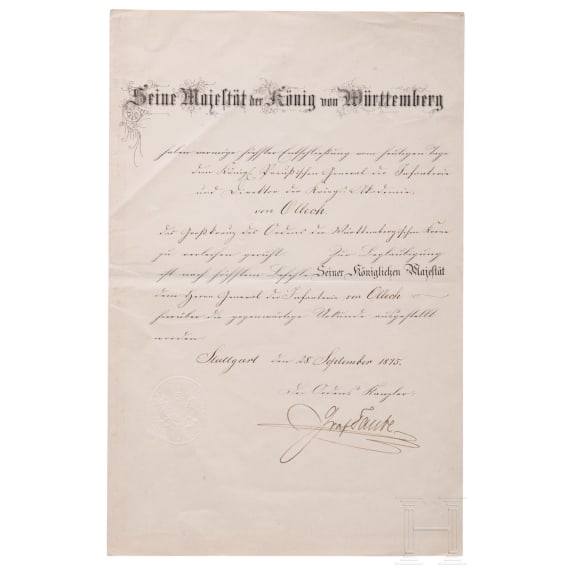 Seine Majestät der König von Württemberg
haben vermöge höchster Entschließung vom heutigen Tage
dem Königl. Preußischen General der Infanterie
und Direktor der Kriegs-Akademie
von Ollech
das Großkreuz des Ordens der Württembergischen Krone
zu verleihen geruht. Zur Beglaubigung
ist nach höchstem Befehle Seiner Königlichen Majestät
dem Herrn General der Infanterie von Ollech
hierüber die gegenwärtige Urkunde ausgestellt
worden.
Stuttgart den 28. September 1875.
Der Ordens Kanzler:
Graf Taube
H